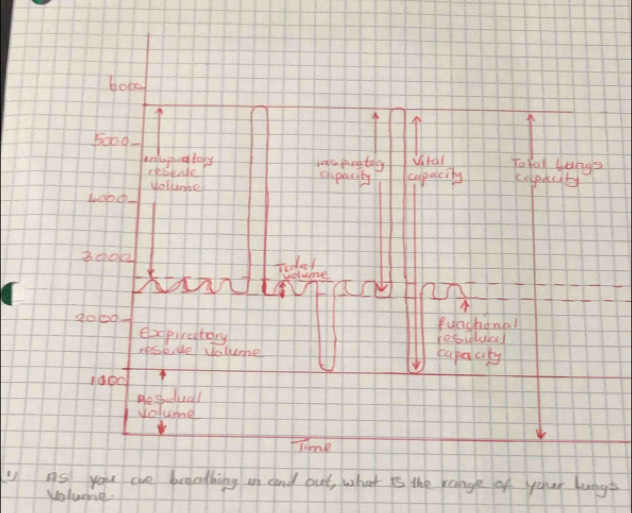 6000
5000
Inspiratory
reserve
volume
Inspiratory
capacity
Vital
capacity
Total Lungs
Capacity
4000
3000
Tidal
volume
2000
Expiratory
reserve volume
Functional
residual
capacity
1000
Residual
volume
Time
1) As you are breathing in and out, what is the range of your lungs
volume.